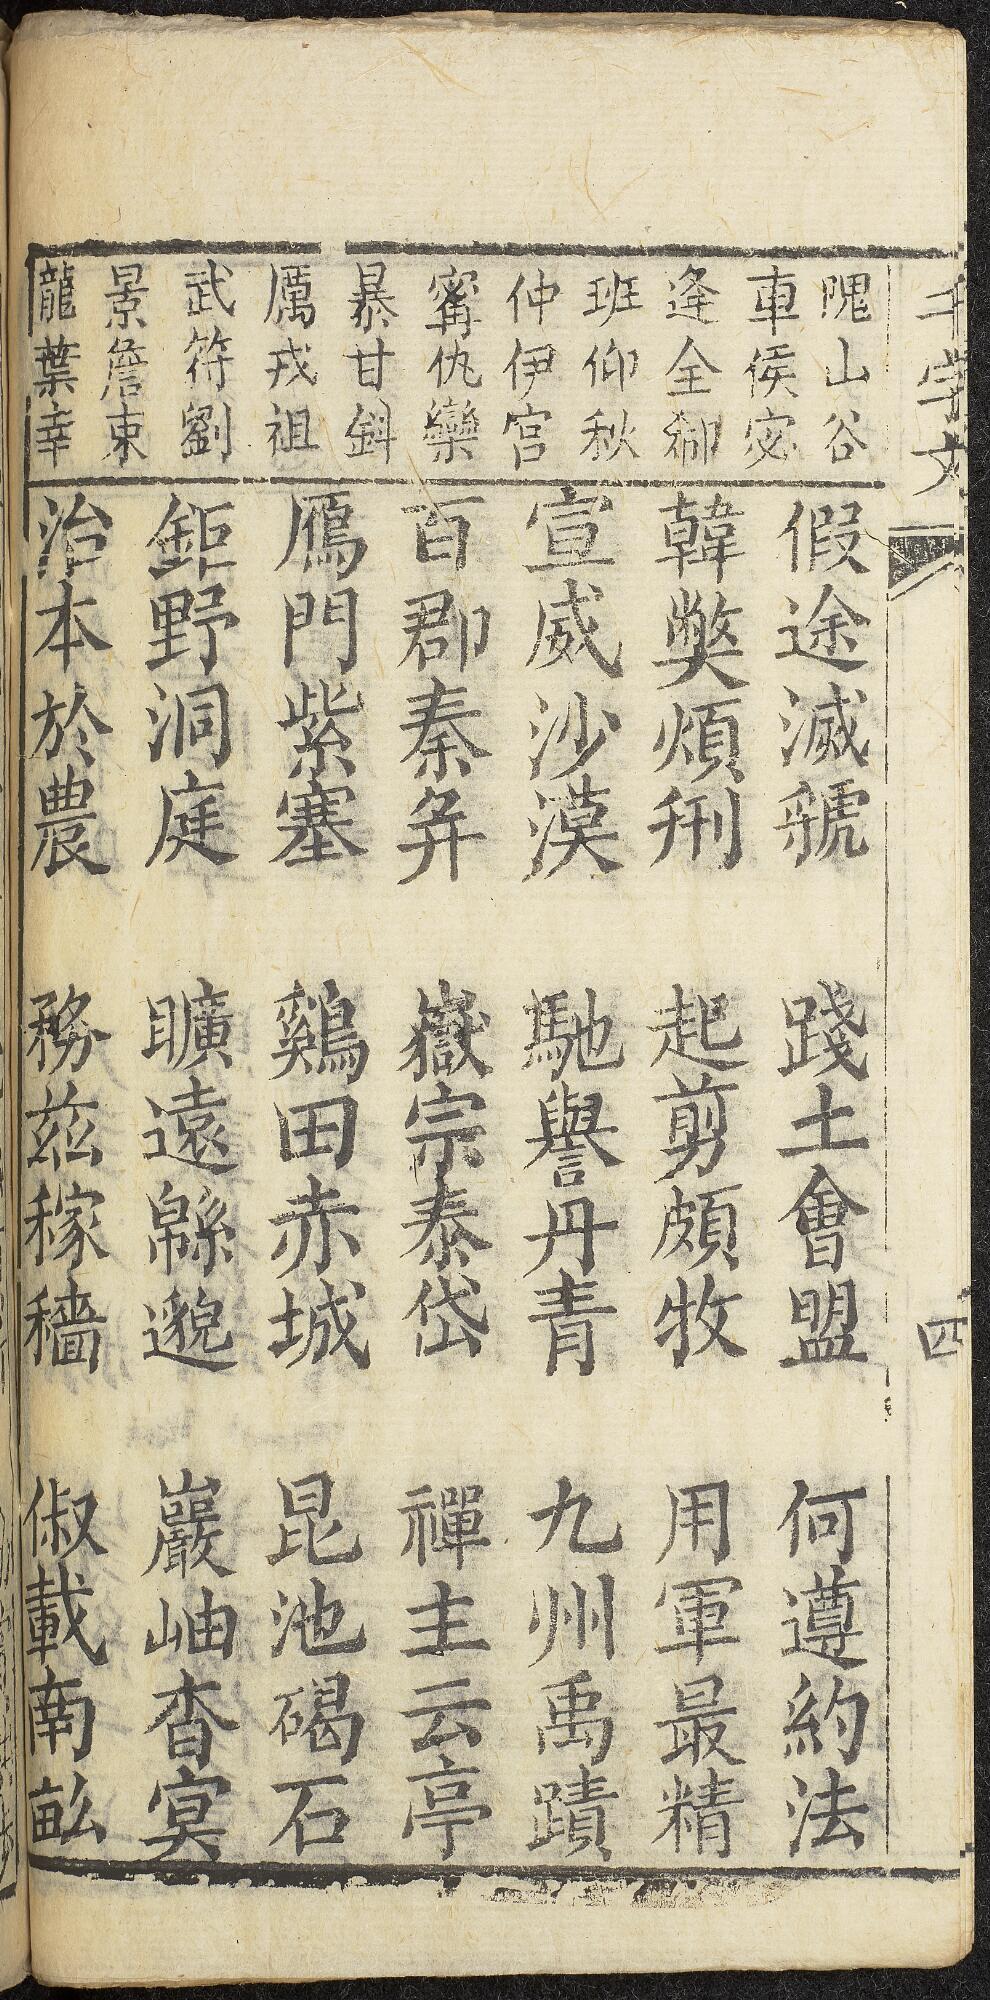 千字文
四
隗山谷
車侯宓
逄全郗
班仰秋
仲伊宫
甯仇欒
暴甘鈄
厲戎祖
武符劉
景詹束
龍葉幸
假途滅虢 踐土會盟 何遵約法
韓弊煩刑 起剪頗牧 用軍最精
宣威沙漠 馳譽丹青 九州禹蹟
百郡秦并 嶽宗泰岱 禪主云亭
鴈門紫塞 鷄田赤城 昆池碣石
鉅野洞庭 曠遠緜邈 巖岫杳冥
治本於農 務兹稼穡 俶載南畝